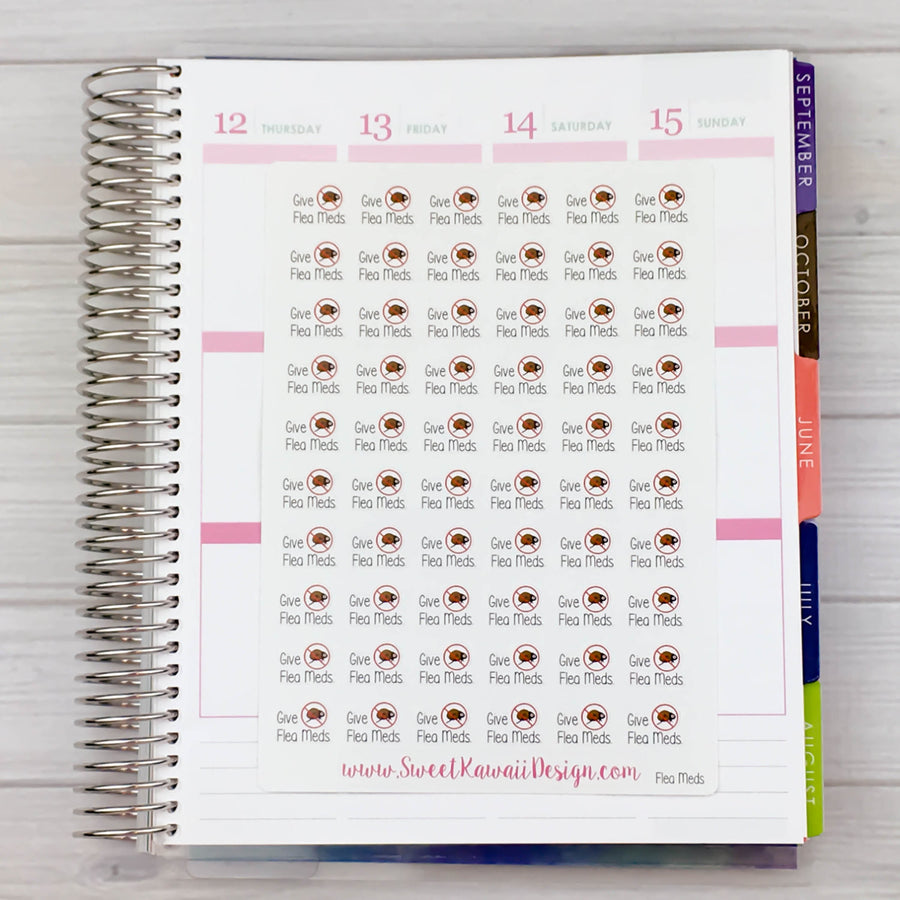 12 THURSDAY 13 FRIDAY 14 SATURDAY 15 SUNDAY
Give Give Give Give Give Give
Flea Meds. Flea Meds. Flea Meds. Flea Meds. Flea Meds. Flea Meds.
Give Give Give Give Give Give
Flea Meds. Flea Meds. Flea Meds. Flea Meds. Flea Meds. Flea Meds.
Give Give Give Give Give Give
Flea Meds. Flea Meds. Flea Meds. Flea Meds. Flea Meds. Flea Meds.
Give Give Give Give Give Give
Flea Meds. Flea Meds. Flea Meds. Flea Meds. Flea Meds. Flea Meds.
Give Give Give Give Give Give
Flea Meds. Flea Meds. Flea Meds. Flea Meds. Flea Meds. Flea Meds.
Give Give Give Give Give Give
Flea Meds. Flea Meds. Flea Meds. Flea Meds. Flea Meds. Flea Meds.
Give Give Give Give Give Give
Flea Meds. Flea Meds. Flea Meds. Flea Meds. Flea Meds. Flea Meds.
Give Give Give Give Give Give
Flea Meds. Flea Meds. Flea Meds. Flea Meds. Flea Meds. Flea Meds.
Give Give Give Give Give Give
Flea Meds. Flea Meds. Flea Meds. Flea Meds. Flea Meds. Flea Meds.
Give Give Give Give Give Give
Flea Meds. Flea Meds. Flea Meds. Flea Meds. Flea Meds. Flea Meds.
www.SweetKawaiiDesign.com Flea Meds
SEPTEMBER
OCTOBER
JUNE
JULY
AUGUST